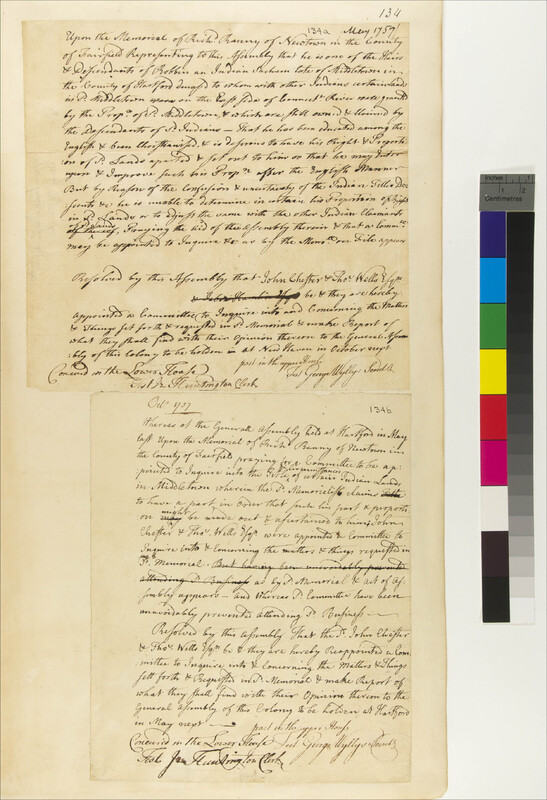 134
134a May 1757
Upon the Memorial of Richd Ranny of Newtown in the County
of Fairfield Representing to this Assembly that he is one of the Heirs
& Descendants of Robbin an Indian Sachem late of Middletown in
the County of Hartford Decasd to whom with other Indians certain land
in sd Middletown on the East side of Connectt River were granted
by the Proprs of sd Middletown, & which are still owned & claimed by
the Descendants of sd Indians – That he has been educated among the
English & been Christianised, & is desirous to have his Right & Proporti-
on of sd Lands aparted & set out to him so that he may Enter
upon & Improve such his after the English Manner
But by Reason of the Confusion & uncertainty of the Indian Titles Des-
cents &c he is unable to determine in certain his Proportion or Right
in sd Lands or to adjust the same with the other Indian Claimants
Praying the aid of this Assembly therein & that a Comtee
may be appointed to Inquire &c as by the Memol on File appears
Resolved by this Assembly that John Chester & Thos Wells Esqrs
be & they are hereby
appointed a Committee to Inquire into and Concerning the Matters
& Things set forth & requested in sd Memorial & make Report of
what they shall find with their Opinion thereon to the General Assem-
bly of this Colony to be holden at New Haven in October next
past in the upper House
Concurd in the Lower House Test George Wyllys Secretr
Test Jn Huntington Clerk
Octr 1757
134b
Whereas at the Generall Assembly held at Hartford in May
last Upon the Memorial of Richd Ranny of Newtown in
the County of Fairfield praying for a Committee to be ap-
pointed to Inquire into the circumstances of certain Indian Lands
in Middletown wherein the sd Memorialist claims
to have a part in Order that such his part & proporti-
on might be made out & ascertained to him; John
Chester & Thos Wells Esqrs were appointed a Committee to
Inquire into & concerning the matters & things requested in
sd Memorial. But having been unavoidably prevented
attending sd Business as by sd Memorial & act of As-
sembly appears – and Whereas sd Committee have been
unavoidably prevented attending sd Business –
Resolved by this Assembly That the sd John Chester
& Thos Wells Esqrs be & they are hereby Reappointed a Com-
mittee to Inquire into & Concerning the Matters & Things
sett forth & Requested in sd Memorial & make Report of
what they shall find with their Opinion thereon to the
General Assembly of this Colony to be holden at Hartford
in May next –
past in the upper House
Concured in the Lower House Test George Wyllys Secretr
Test Jn Huntington Clerk
Inches 1 2
Centimetres